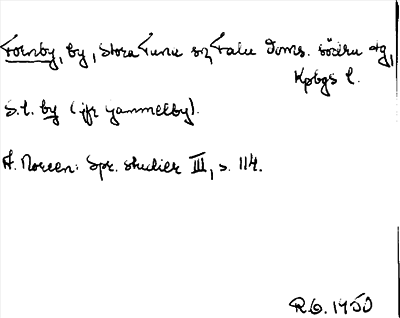 Fornby, by, Stora Tuna sn, Falu Doms. södra dtg,
Kpbgs l.
S.l. by (jfr Gammelby).
A. Noreen: Spr. studier III, s. 114.
R.O. 1950